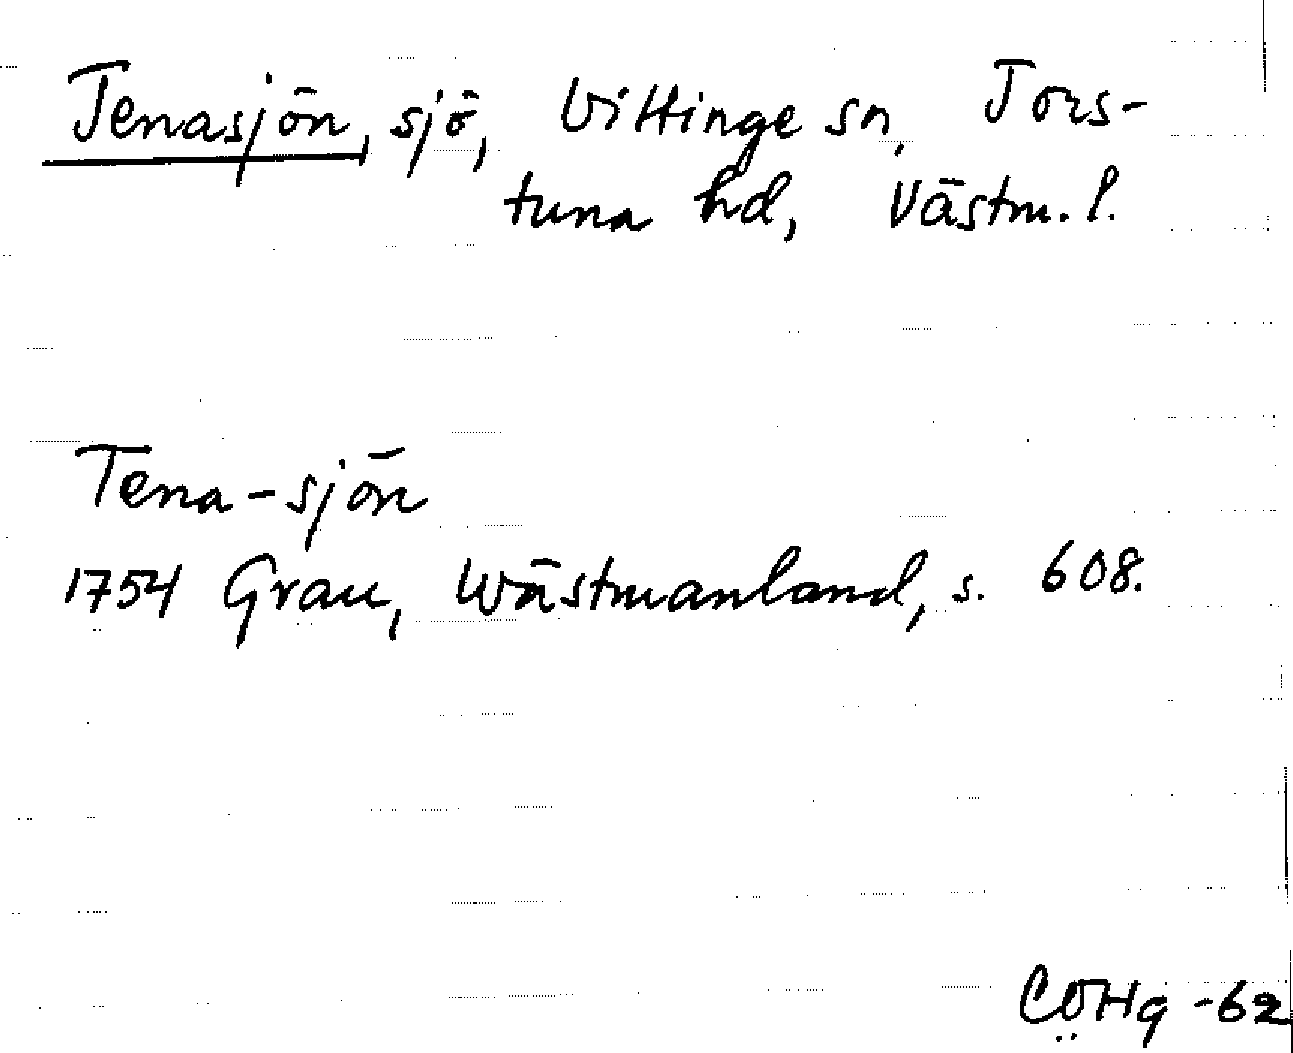 Tenasjön, sjö, Vittinge sn, Tors-
tuna hd, Västm. l.
Tena-sjön
1754 Grau, Wästmanland, s. 608.
CÖHg -62